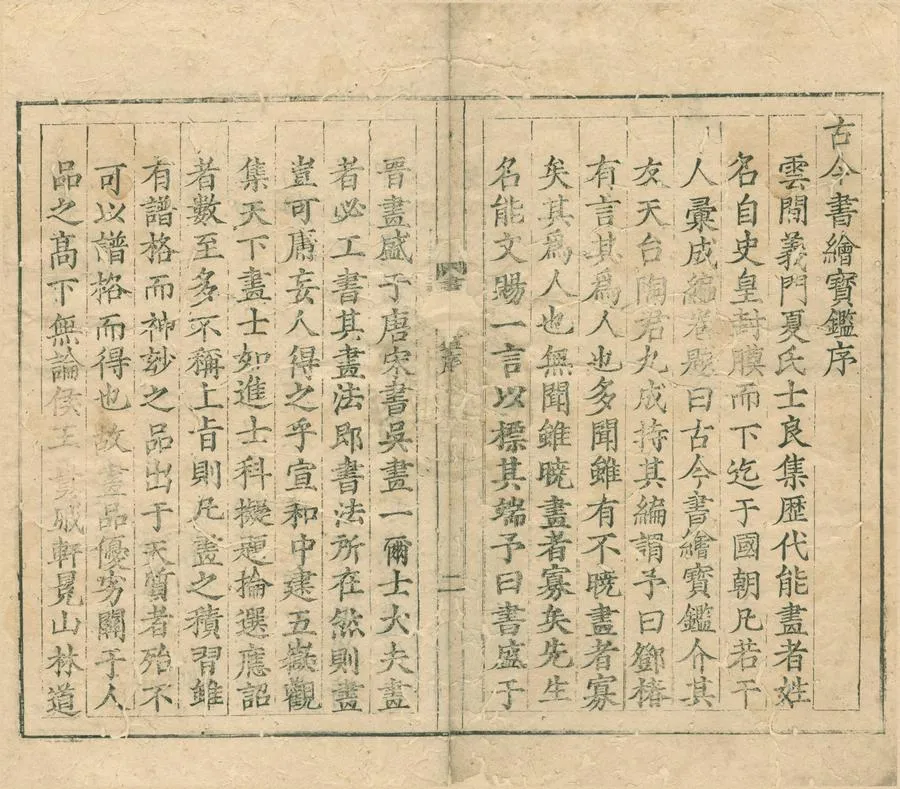 古今書繪寳鑑序
雲間義門夏氏士良集歷代能畫者姓
名自史皇封膜而下迄于國朝凡若干
人彚成編卷題曰古今書繪寳鑑介其
友天台陶君九成持其編謂予曰鄧椿
有言其爲人也多聞雖有不曉畫者寡
矣其爲人也無聞雖曉畫者寡矣先生
名能文賜一言以標其端予曰書盛于
序
二
晉畫盛于唐宋書與畫一爾士大夫畫
者必工書其畫法即書法所在然則畫
豈可庸妄人得之乎宣和中建五嶽觀
集天下畫士如進士科擬題掄選應詔
者數至多不稱上旨則凡畫之積習雖
有譜格而神妙之品出于天質者殆不
可以譜格而得也故畫品優劣關于人
品之髙下無論侯王戚軒冕山林道